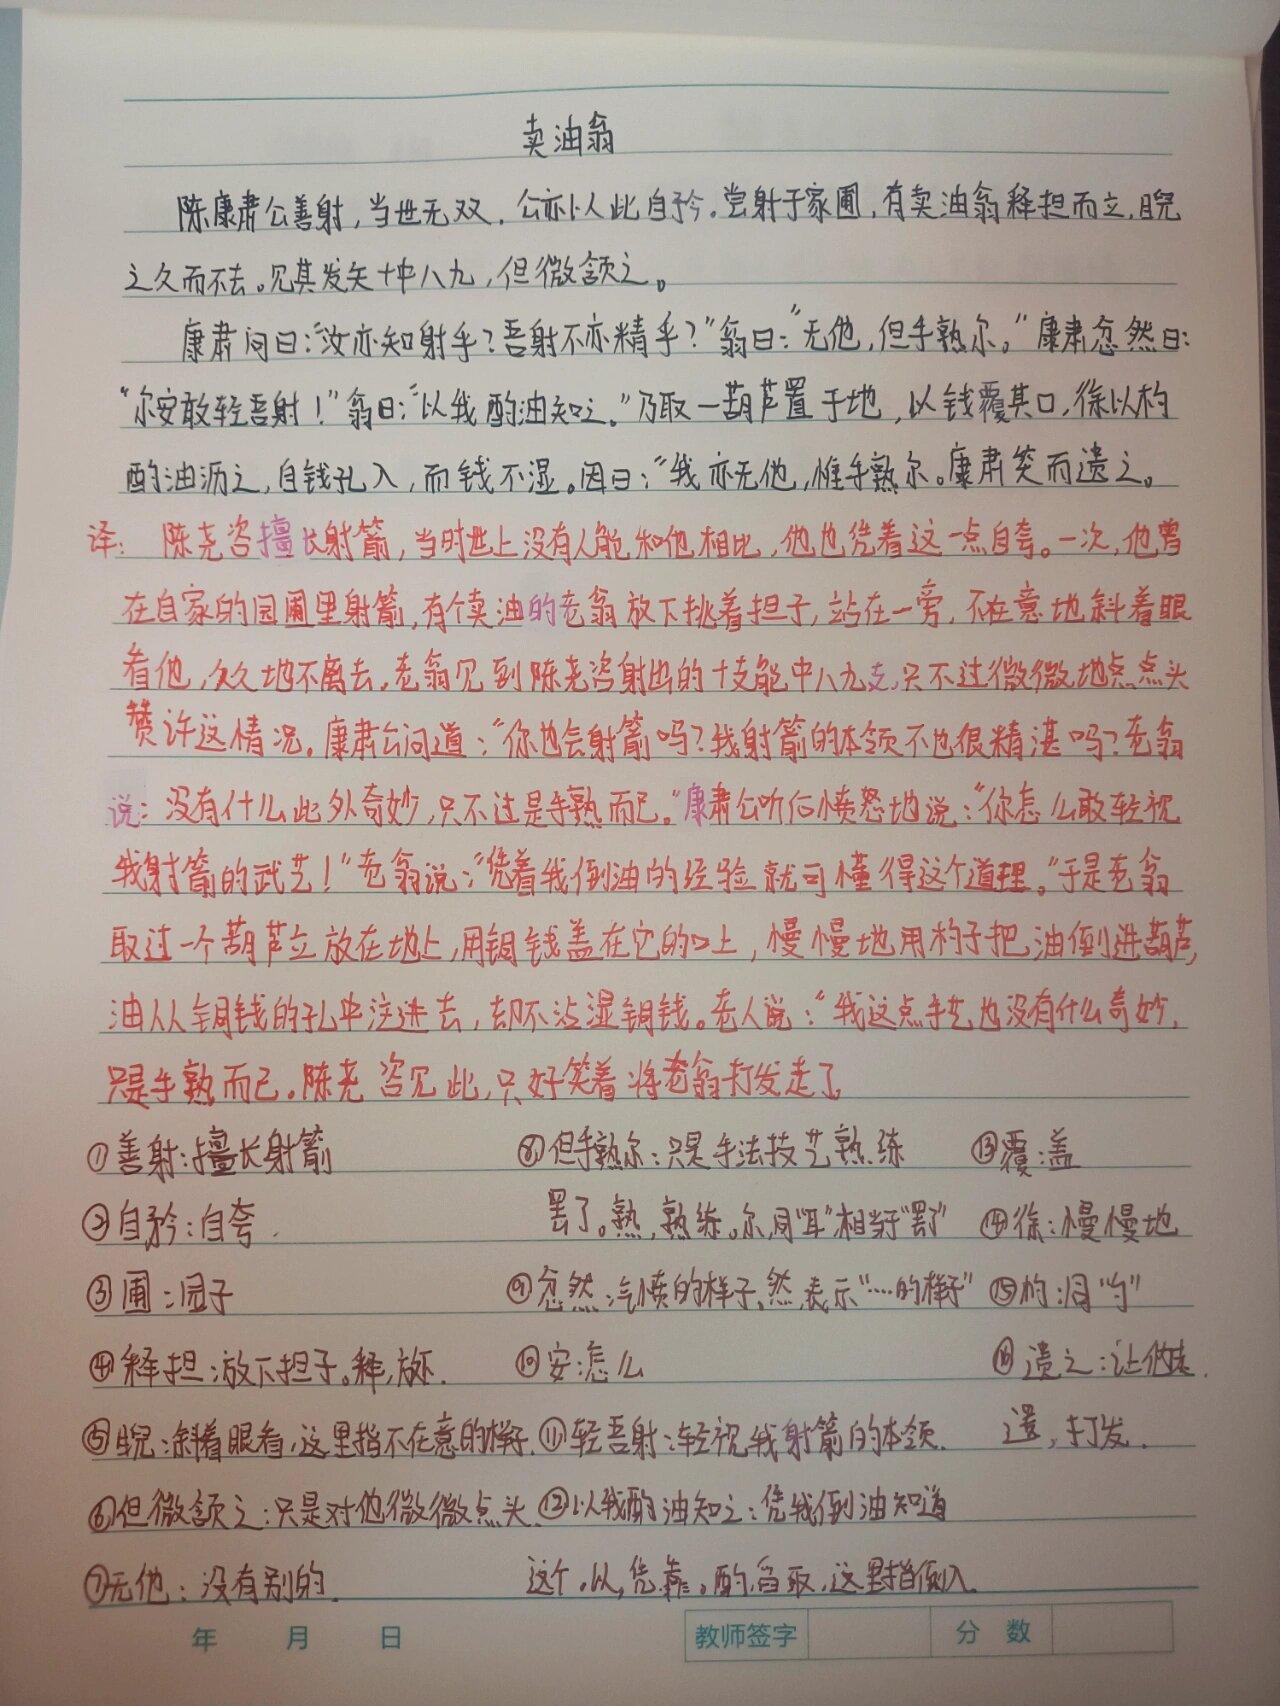 卖油翁
陈康肃公善射，当世无双，公亦以此自矜。尝射于家圃，有卖油翁释担而立，睨
之久而不去。见其发矢十中八九，但微颔之。
康肃问曰：“汝亦知射乎？吾射不亦精乎？”翁曰：“无他，但手熟尔。”康肃忿然曰：
“尔安敢轻吾射！”翁曰：“以我酌油知之。”乃取一葫芦置于地，以钱覆其口，徐以杓
酌油沥之，自钱孔入，而钱不湿。因曰：“我亦无他，惟手熟尔。康肃笑而遣之。
译：陈尧咨擅长射箭，当时世上没有人能和他相比，他也凭着这一点自夸。一次，他曾
在自家的园圃里射箭，有个卖油的老翁放下挑着担子，站在一旁，不在意地斜着眼
看他，久久地不离去。老翁见到陈尧咨射出的十支能中八九支，只不过微微地点点头
赞许这情况。康肃公问道：“你也会射箭吗？我射箭的本领不也很精湛吗？老翁
说：没有什么此外奇妙，只不过是手熟而已。”康肃公听后愤怒地说：“你怎么敢轻视
我射箭的武艺！”老翁说：“凭着我倒油的经验就可懂得这个道理。”于是老翁
取过一个葫芦立放在地上，用铜钱盖在它的口上，慢慢地用杓子把油倒进葫芦，
油从从铜钱的孔中注进去，却不沾湿铜钱。老人说：“我这点手艺也没有什么奇妙，
只是手熟而已。陈尧咨见此，只好笑着将老翁打发走了
①善射：擅长射箭 ⑧但手熟尔：只是手法技艺熟练 ⑬覆：盖
②自矜：自夸． 罢了。熟，熟练。尔，同“耳”相当于“罢了” ⑭徐：慢慢地
③圃：园子 ⑨忿然：气愤的样子。然，表示“……的样子” ⑮杓：同“勺”
④释担：放下担子。释，放下． ⑩安：怎么 ⑯遣之：让他走．
⑤睨：斜着眼看，这里指不在意的样子． ⑪轻吾射：轻视我射箭的本领． 遣，打发．
⑥但微颔之：只是对他微微点头． ⑫以我酌油知之：凭我倒油知道
⑦无他：没有别的． 这个。以，凭靠。酌，舀取，这里指倒入．
年 月 日 教师签字 分 数